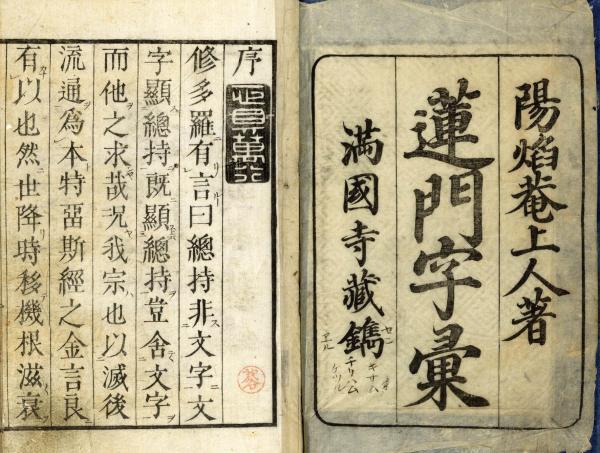 陽焰菴上人著
蓮門字彙
滿國寺藏鐫
序
修多羅有言曰總持非文字文
字顯總持既顯總持豈舍文字
而他之求哉況我宗也以滅後
流通為本特留斯經之金言良
有以也然世降時移機根滋衰